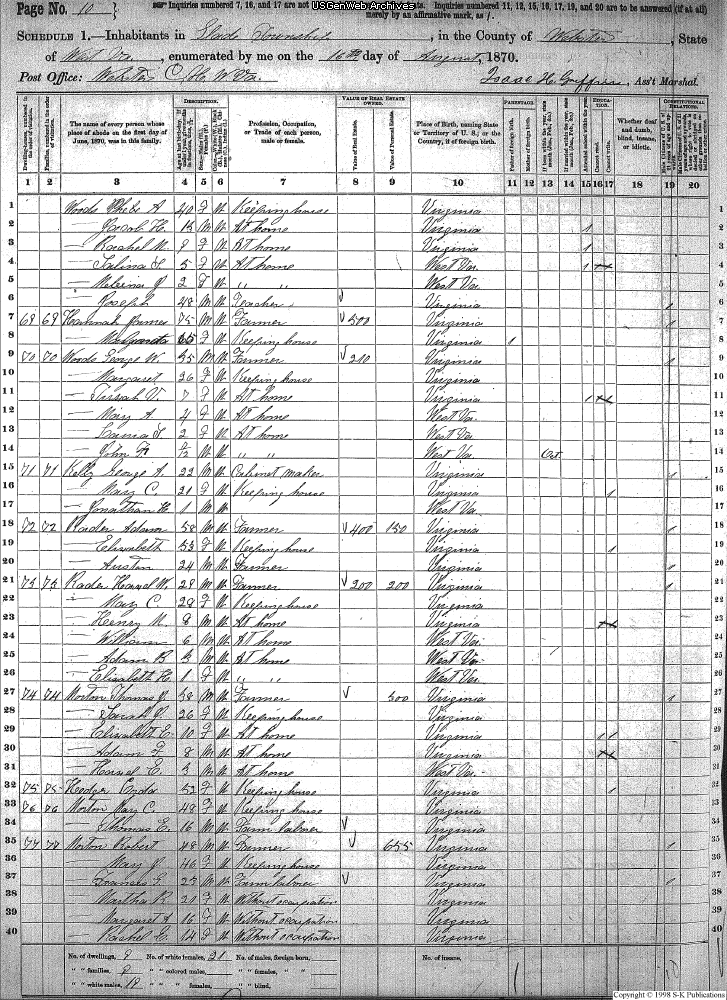 USGenWeb Archives
Page No. 10
Inquiries numbered 7, 16, and 17 are not
Inquiries numbered 11, 12, 15, 16, 17, 19, and 20 are to be answered (if at all)
merely by an affirmative mark, as /.
SCHEDULE 1.—Inhabitants in Glade Township, in the County of Webster, State
of West Va., enumerated by me on the 16th day of August, 1870.
Post Office: Webster C. H. W. Va.
Isaac H. Griffin, Ass't Marshal.
DESCRIPTION. VALUE OF REAL ESTATE OWNED. PARENTAGE. EDUCATION. CONSTITUTIONAL RELATIONS.
Dwelling-houses, numbered in the order of visitation.
Families, numbered in the order of visitation.
The name of every person whose place of abode on the first day of June, 1870, was in this family.
Profession, Occupation, or Trade of each person, male or female.
Value of Real Estate.
Value of Personal Estate.
Place of Birth, naming State or Territory of U. S.; or the Country, if of foreign birth.
Father of foreign birth.
Mother of foreign birth.
Attended school within the year.
Cannot read.
Cannot write.
Whether deaf and dumb, blind, insane, or idiotic.
1 2 3 4 5 6 7 8 9 10 11 12 13 14 15 16 17 18 19 20
1 Woods Phebe A 40 F W Keeping house Virginia 1
2 — Jacob H. 15 M W At home Virginia / 2
3 — Rachel M. 8 F W At home Virginia / 3
4 — Salina S. 5 F W At home West Va. / 4
5 — 2 F W " " West Va. 5
6 — Joseph 48 M W Teacher Virginia / 6
7 69 69 Hannah James 75 M W Farmer 500 Virginia / 7
8 — Margaret 65 F W Keeping house Virginia / 8
9 70 70 Woods George W. 35 M W Farmer 210 Virginia / 9
10 — Margaret 26 F W Keeping house Virginia 10
11 — 7 F W At home Virginia / 11
12 — Mary A. 4 F W At home West Va. 12
13 — Laura S. 2 F W At home West Va. 13
14 — John F. M W " " West Va. Oct 14
15 71 71 Kelly George A. 22 M W Cabinet maker Virginia / 15
16 — Mary C. 21 F W Keeping house Virginia / 16
17 — Jonathan H. 1 M W West Va. 17
18 72 72 Rader Adam 58 M W Farmer 400 150 Virginia / 18
19 — Elizabeth 53 F W Keeping house Virginia / 19
20 — Austin 24 M W Farmer Virginia / 20
21 73 73 Rader Harvel W. 29 M W Farmer 200 200 Virginia / 21
22 — Mary C. 28 F W Keeping house Virginia 22
23 — Henry M. 8 M W At home Virginia 23
24 — William 6 M W At home West Va. 24
25 — Adam B 3 M W At home West Va. 25
26 — Elizabeth H. 1 F W " " West Va. 26
27 74 74 Morton Thomas J. 38 M W Farmer 500 Virginia / 27
28 — Sarah J. 26 F W Keeping house Virginia 28
29 — Elizabeth E. 10 F W At home Virginia / / 29
30 — Adam F. 8 M W At home Virginia 30
31 — Harvel E. 3 M W At home West Va. 31
32 75 75 Hedger 52 F W Keeping house Virginia / 32
33 76 76 Morton Mary C. 48 F W Keeping house Virginia 33
34 — Thomas E. 16 M W Farm laborer Virginia 34
35 77 77 Morton Robert 48 M W Farmer 655 Virginia / 35
36 — Mary J. 46 F W Keeping house Virginia 36
37 — Francis G. 23 M W Farm laborer Virginia / 37
38 — Martha R. 20 F W Without occupation Virginia 38
39 — Margaret A 16 F W Without occupation Virginia 39
40 — Rachel E. 14 F W Without occupation Virginia 40
No. of dwellings, 9 No. of white females, 21 No. of males, foreign born, No. of insane,
" " families, 9 " " colored males, " " females, " "
" " white males, 19 " " " females, " " blind,
Copyright © 1998 S-K Publications